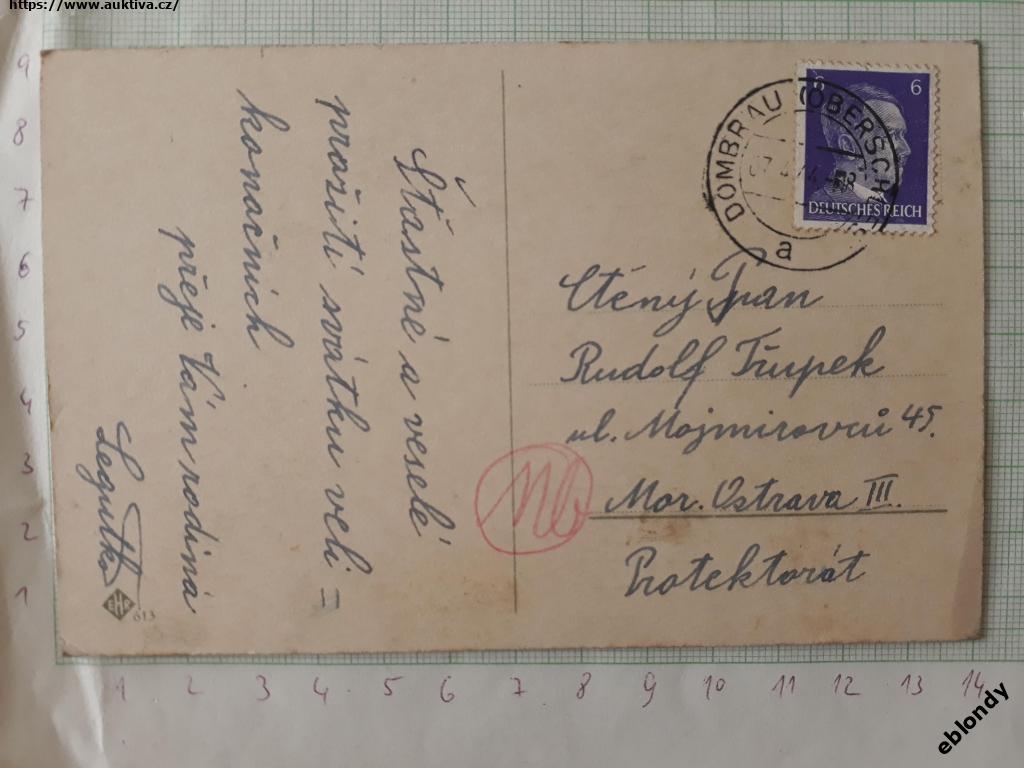 https://www.auktiva.cz/
Šťastné a veselé
prožití svátků veli =
konočních
přeje Vám rodina
Legutka
EHK
613
6 6
DEUTSCHES REICH
DOMBRAU (OBERSCH
a
Ctěný Pan
Rudolf Ťrupek
ul. Mojmirovců 45.
Mor. Ostrava III.
Protektorát
Nb
9
8
7
6
5
4
3
2
1
1 2 3 4 5 6 7 8 9 10 11 12 13 14
eblondy